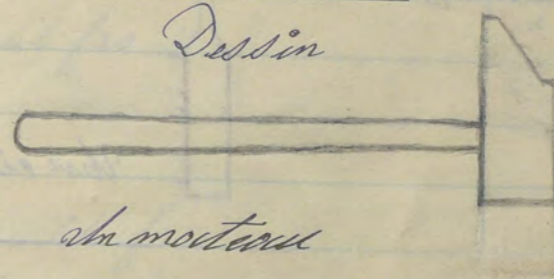 Dessin
Un marteau